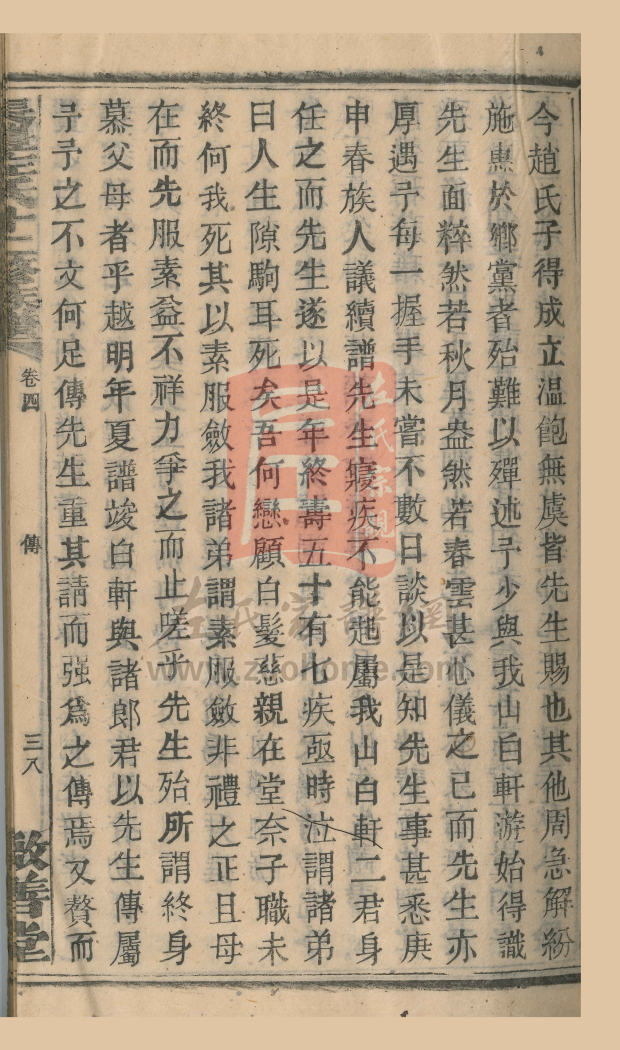 今趙氏子得成立溫飽無虞皆先生賜也其他周急解紛
施惠於鄉黨者殆難以殫述予少與我山白軒游始得識
先生面粹然若秋月盎然若春雲甚心儀之已而先生亦
厚遇予每一握手未嘗不數日談以是知先生事甚悉庚
申春族人議續譜先生寢疾不能起屬我山白軒二君身
任之而先生遂以是年終壽五十有七疾亟時泣謂諸弟
曰人生隙駒耳死矣吾何戀顧白髮慈親在堂奈子職未
終何我死其以素服斂我諸弟謂素服斂非禮之正且母
在而先服素益不祥力爭之而止嗟乎先生殆所謂終身
慕父母者乎越明年夏譜竣白軒與諸郎君以先生傳屬
予予之不文何足傳先生重其請而强為之傳焉又贅而
卷四
傳
三八
啟善堂
左氏宗譜網
www.zuohome.com